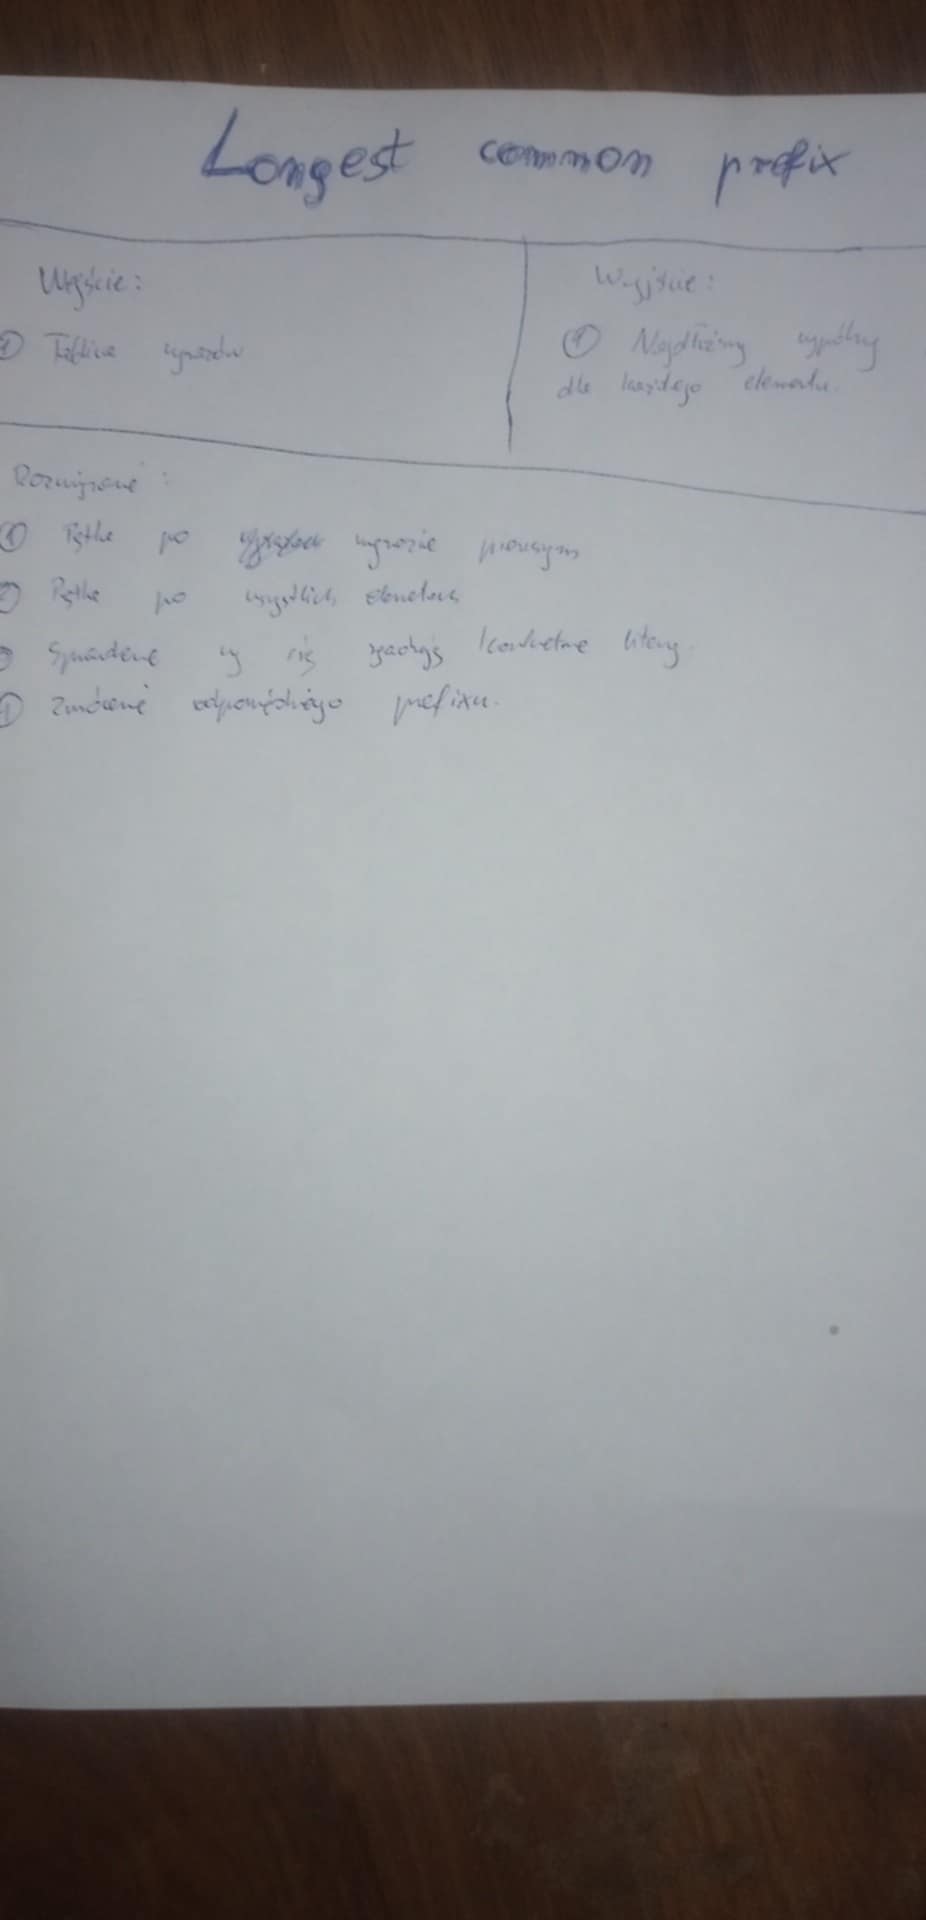 Longest common prefix
Wejście:
① Tablica wyrazów
Wyjście:
① Najdłuższy wspólny
dla każdego elementu.
Rozwiązanie:
① Pętla po wyrazie pierwszym
② Pętla po wszystkich elementach
③ Sprawdzenie czy się zgadzają konkretne litery.
④ Zwrócenie odpowiedniego prefixu.